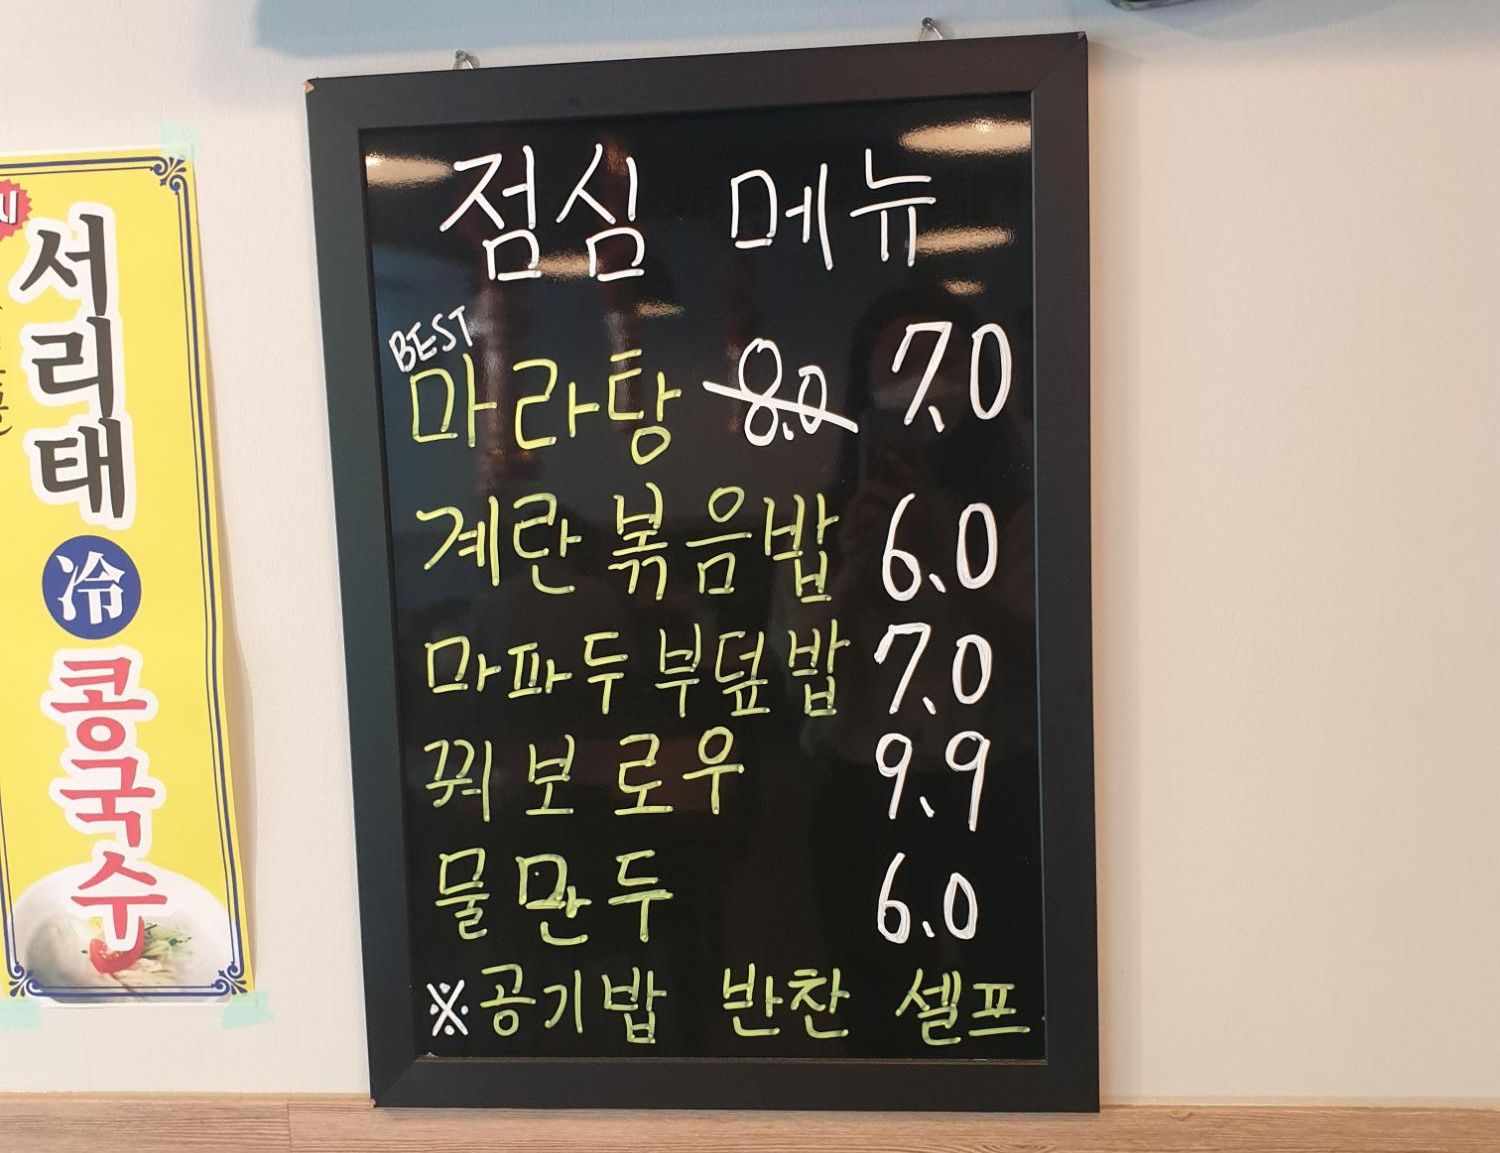 서리태
冷
콩국수
점심 메뉴
BEST
마라탕 8.0 7.0
계란볶음밥 6.0
마파두부덮밥 7.0
꿔보로우 9.9
물만두 6.0
※공기밥 반찬 셀프